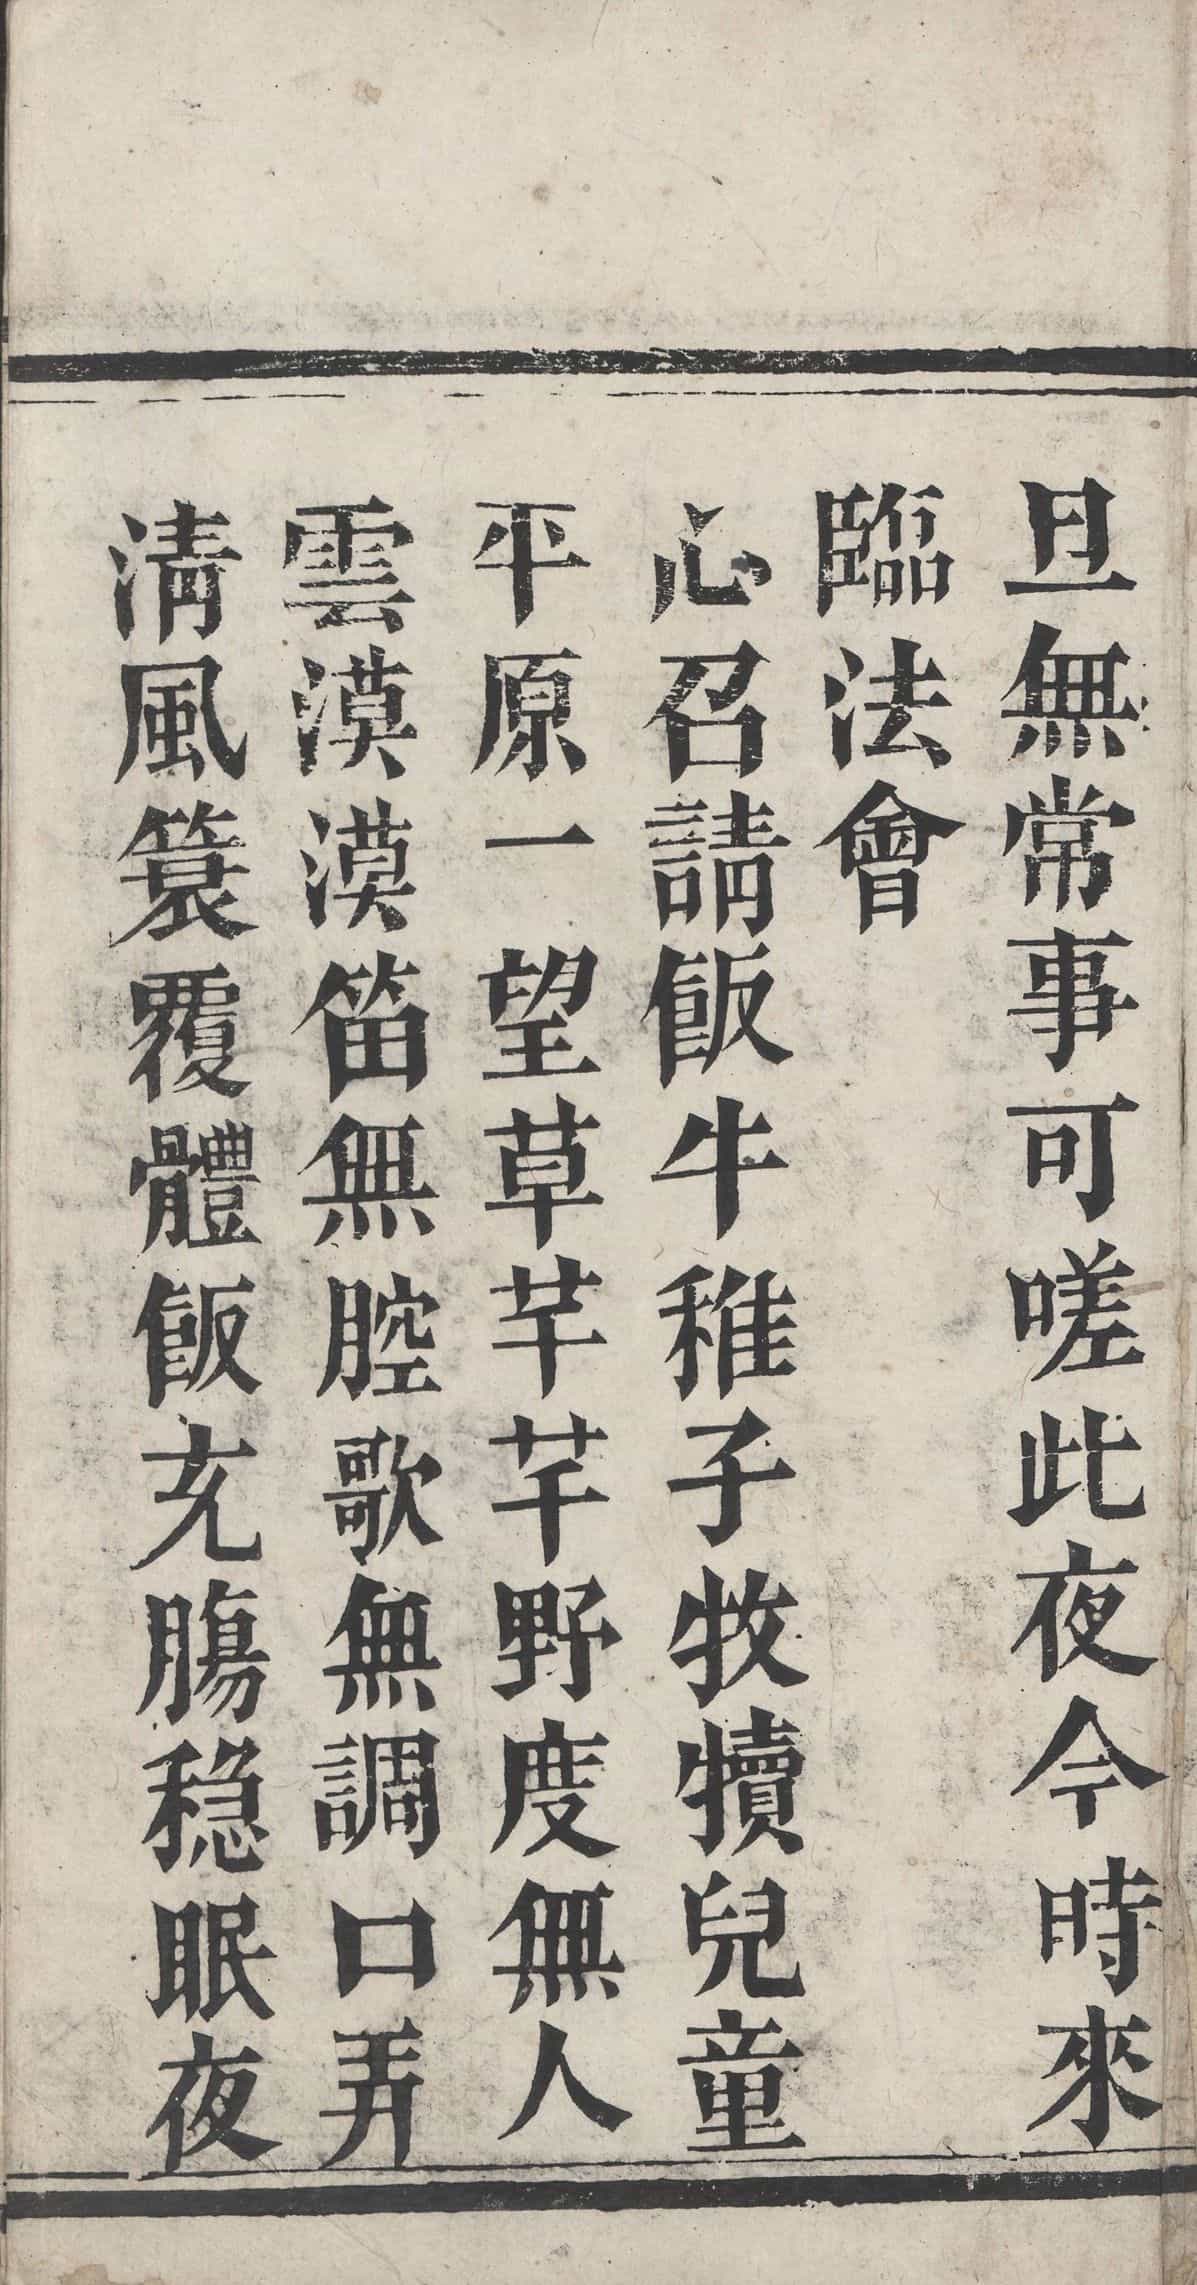 旦無常事可嗟此夜今時來
臨法會
心召請飯牛稚子牧犢兒童
平原一望草芊芊野度無人
雲漠漠笛無腔歌無調口弄
清風簑覆體飯充腸穏眠夜